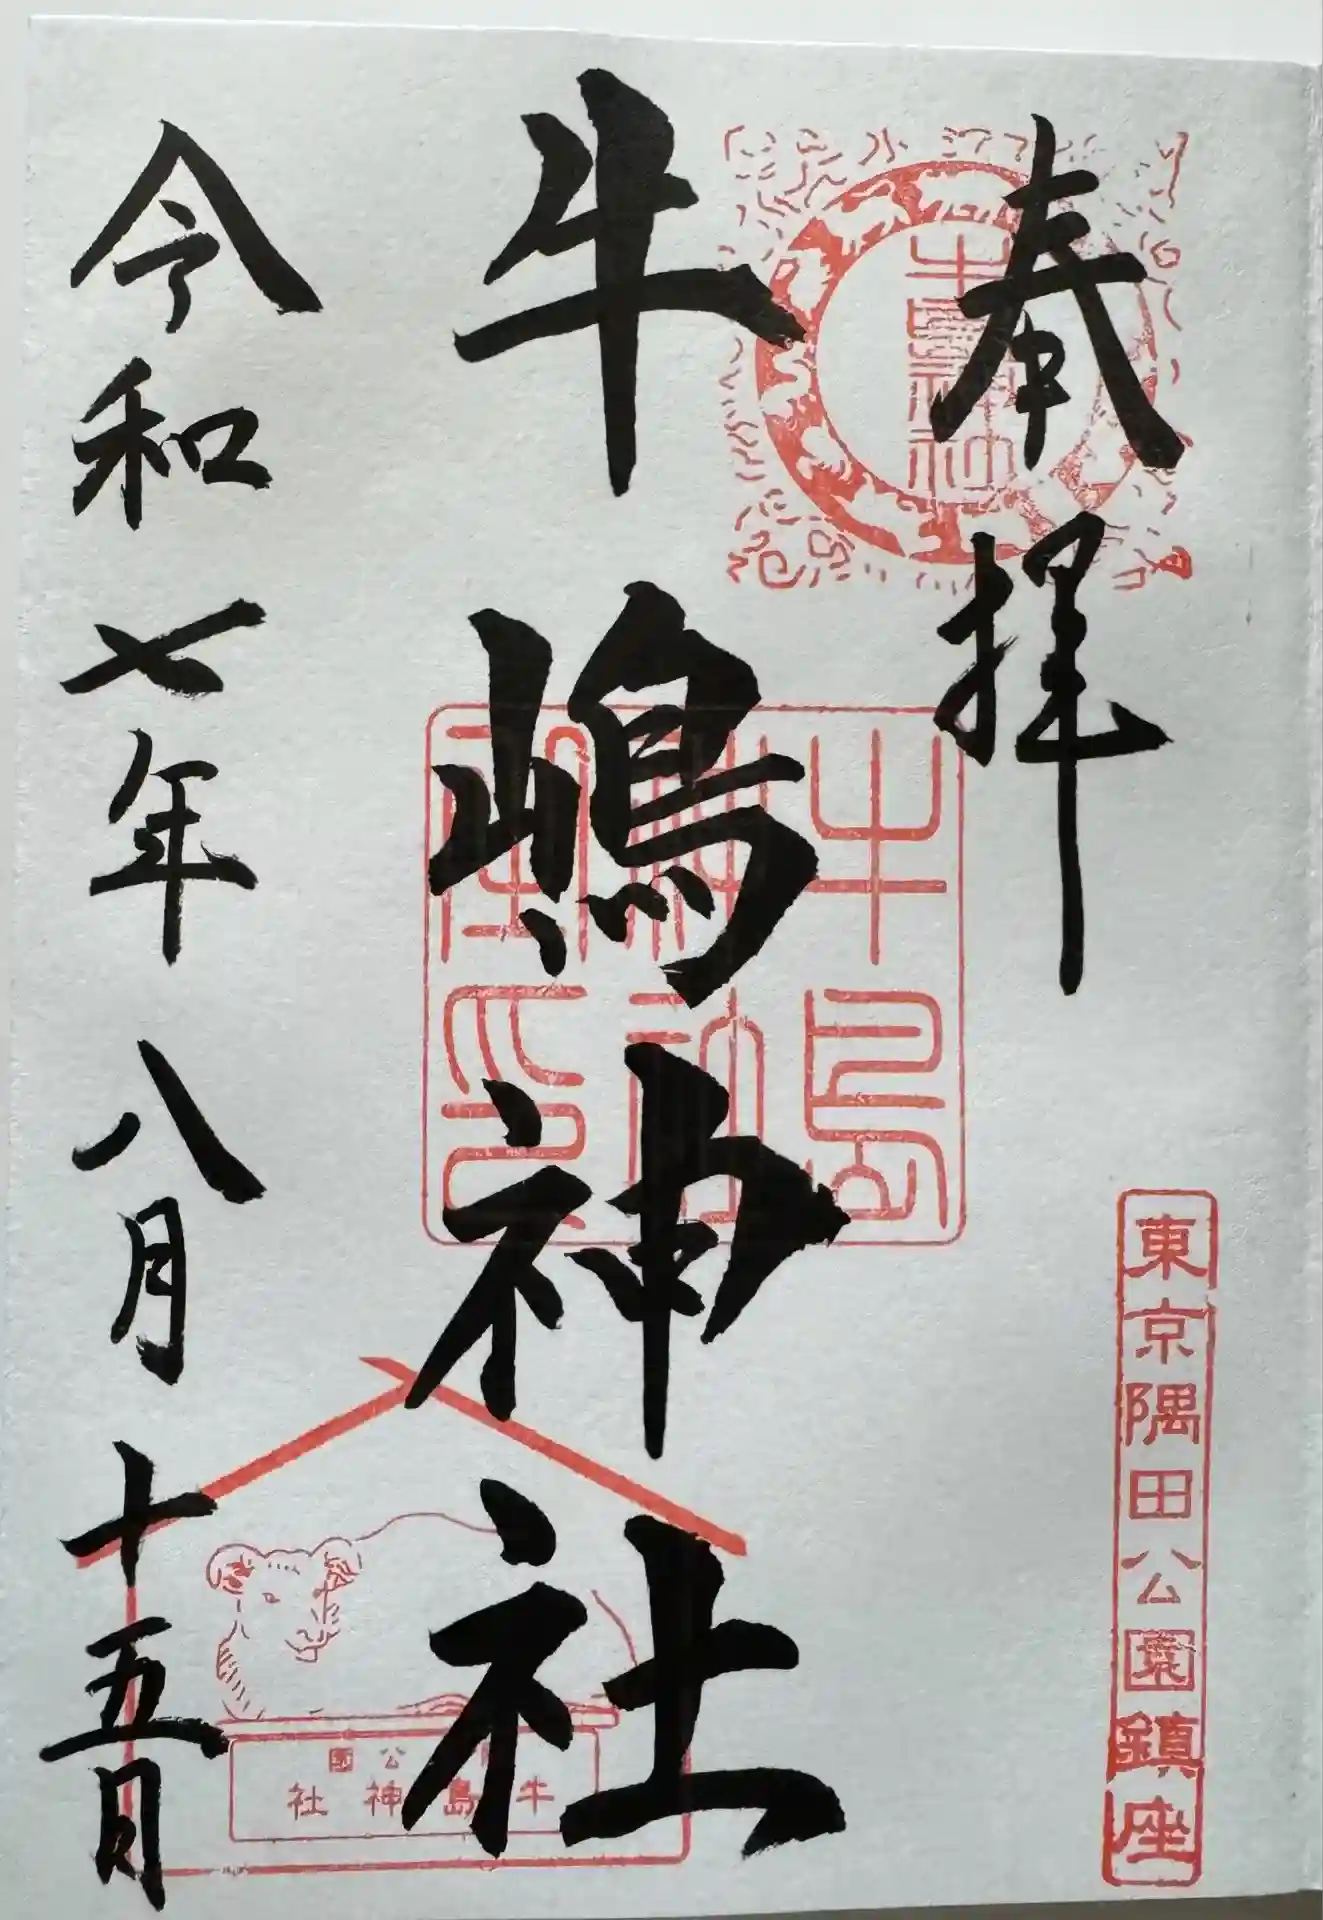 奉拝
東京隅田公園鎮座
牛嶋神社
牛島
神社
令和七年八月十五日
公園
牛島神社